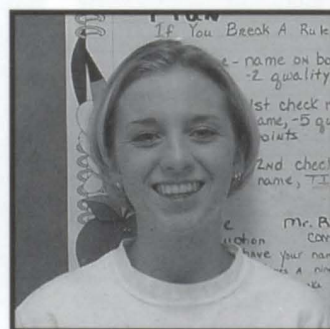 Plan
If You Break A Rule
- name on bo
-2 quality
1st check
ame, -5 qu
oints
2nd chec
name, TI
e Mr. R
uction Con
have your nam